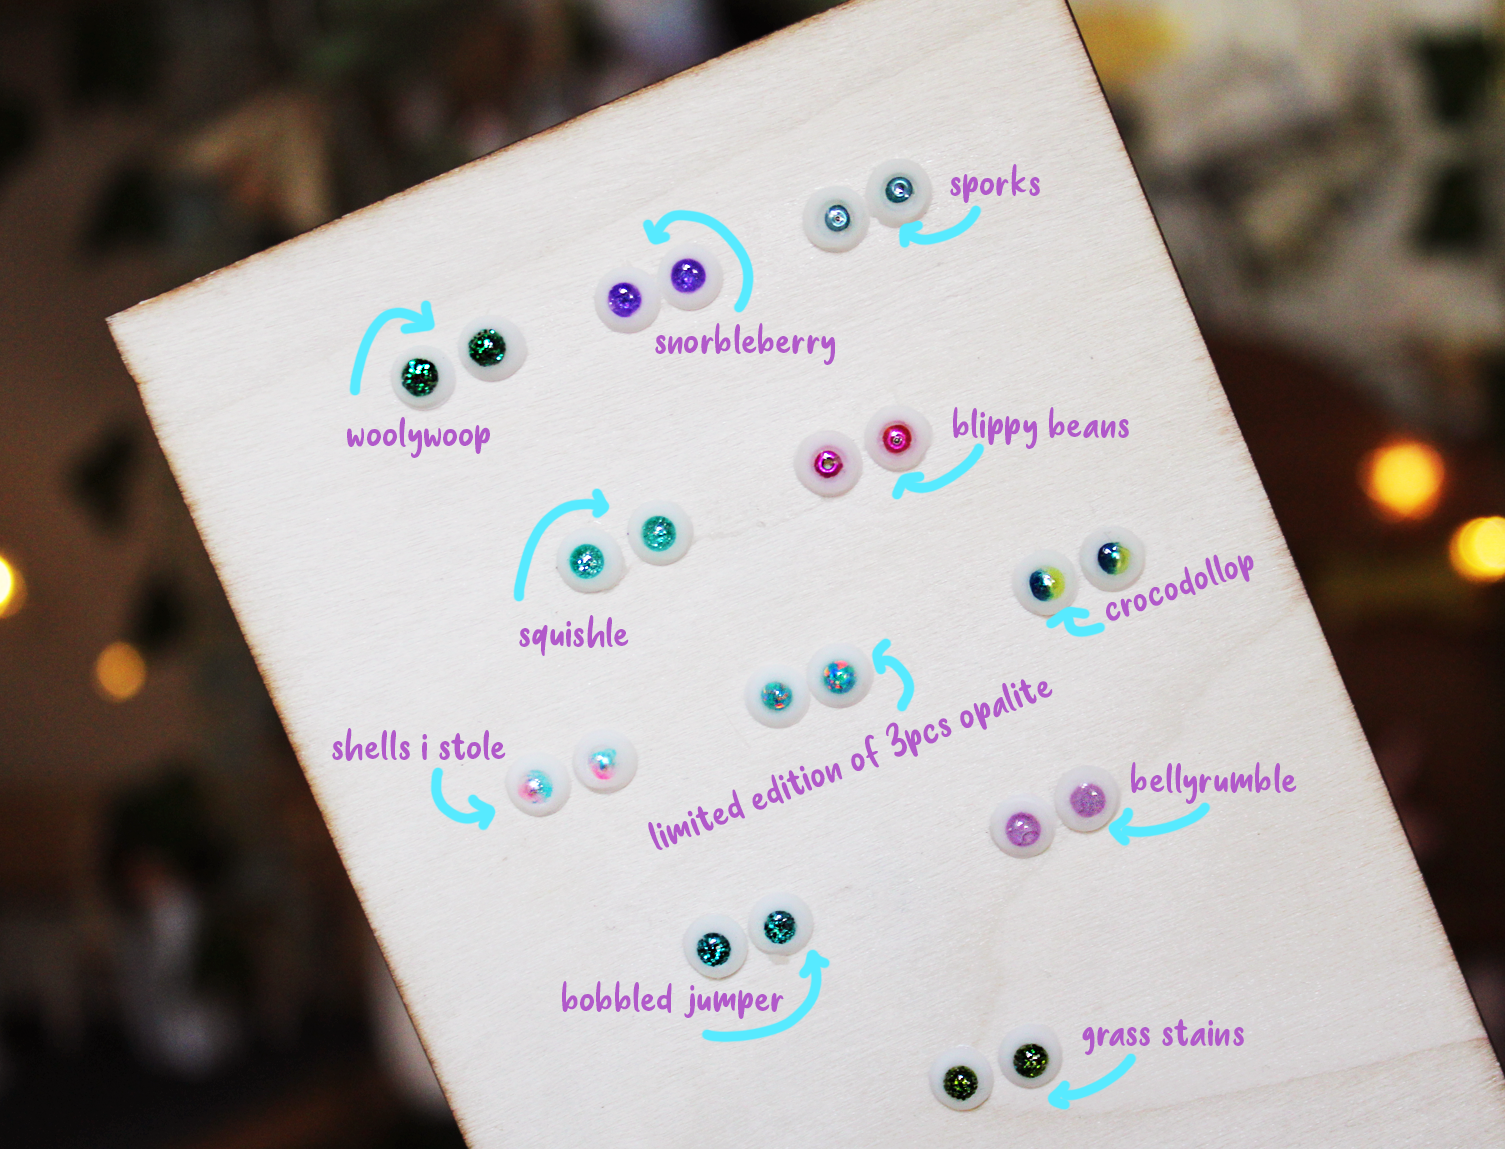 sporks
snorbleberry
woolywoop
blippy beans
squishle
crocodollop
limited edition of 3pcs opalite
shells i stole
bellyrumble
bobbled jumper
grass stains